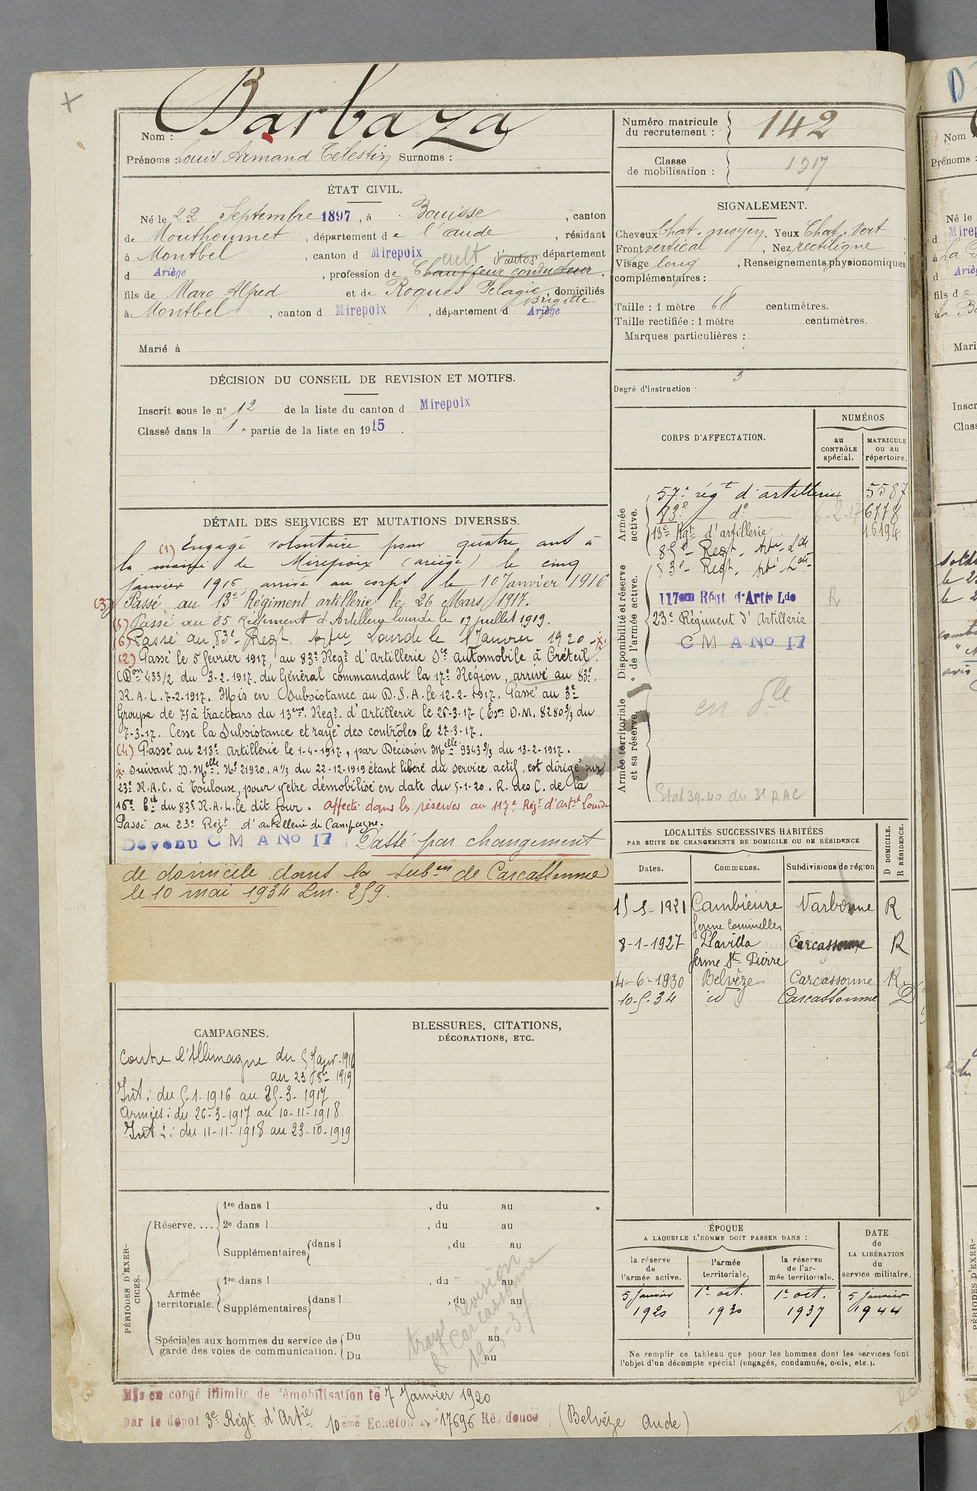 Nom : Barbaza
Prénoms Louis Armand Célestin Surnoms :
Numéro matricule du recrutement : 142
Classe de mobilisation : 1917
ÉTAT CIVIL.
Né le 22 Septembre 1897, à Bouisse, canton
de Mouthoumet, département de l'aude, résidant
à Montbel, canton d Mirepoix, département
d Ariège, profession de Chauffeur conducteur d'autos cult
fils de Marc Alfred et de Roques Pélagie Brigitte, domiciliés
à Montbel, canton d Mirepoix, département d Ariège
Marié à
SIGNALEMENT.
Cheveux Chat. moyen Yeux Chat. vert
Front vertical, Nez rectiligne
Visage long, Renseignements physionomiques
complémentaires :
Taille : 1 mètre 68 centimètres.
Taille rectifiée : 1 mètre centimètres.
Marques particulières :
Degré d'instruction 3
DÉCISION DU CONSEIL DE REVISION ET MOTIFS.
Inscrit sous le n° 12 de la liste du canton d Mirepoix
Classé dans la 1e partie de la liste en 1915.
CORPS D'AFFECTATION.
NUMÉROS
au CONTRÔLE spécial.
MATRICULE OU AU répertoire.
Armée active.
57e régt d'artillerie 5587
73e do 6778
13e Rgt d'artillerie 16194
85e Regt Art. Lde
83e Regt Art. Lde
Disponibilité et réserve de l'armée active.
117em Régt d'Artie Lde R
23e Régiment d'Artillerie
C M A No 17
Armée territoriale et sa réserve.
Stat 39-40 du 3e RAC
DÉTAIL DES SERVICES ET MUTATIONS DIVERSES.
(1) Engagé volontaire pour quatre ans à
la mairie de Mirepoix (ariège) le cinq
janvier 1916 arrivé au corps le 10 Janvier 1916
(3) Passé au 13e Régiment artillerie le 26 Mars 1917.
(5) Passé au 85 Régiment d'Artillery lourde le 17 juillet 1919.
(6) Passé au 83e Regt Artie Lourde le 1 Janvier 1920
(2) Passé le 5 février 1917, au 83e Regt d'Artillerie Son automobile à Créteil.
(Don 433/2 du 3-2-1917, du Général commandant la 17e Région, arrivé au 83e
R.A.L. 7-2-1917. Mis en Subsistance au D.S.A. le 12-2-1917. Passé au 3e
Groupe de 75 à tracteurs du 13eme Regt d'Artillerie le 26-3-17 (Don D.M. 8280 3/3 du
7-3-17. Cesse la Subsistance et rayé des contrôles le 27-3-17.
(4) Passé au 213e Artillerie le 1-4-1917, par Décision Melle 9343 3/3 du 13-2-1917.
suivant D. Melle No 21920. A 1/3 du 22-12-1919 étant libéré du service actif, est dirigé sur
23e R.A.C. à Toulouse, pour y être démobilisé en date du 5-1-20. R. des C. de la
16e Bie du 83e R.A.L. le dit jour. Affecté dans les réserves au 117e Régt d'Artie Lourde
Passé au 23e Régt d'artillerie de Campagne.
Devenu C M A No 17 Passé par changement
de domicile dans la subon de Carcassonne
le 10 mai 1934 Lm. 259.
LOCALITÉS SUCCESSIVES HABITÉES
PAR SUITE DE CHANGEMENTS DE DOMICILE OU DE RÉSIDENCE
Dates. Communes. Subdivisions de région D DOMICILE. R RÉSIDENCE.
15-5-1921 Cambieure Narbonne R
8-1-1927 ferme Llavilla Carcassonne R
ferme St Pierre
4-6-1930 Belvèze Carcassonne R
10-5-34 id Carcassonne D
CAMPAGNES.
Contre l'Allemagne du 5 Janv. 1916
au 23-8-1919
Int : du 5-1-1916 au 25-3-1917
Armées : du 26-3-1917 au 10-11-1918
Int : du 11-11-1918 au 23-10-1919
BLESSURES, CITATIONS,
DÉCORATIONS, ETC.
PÉRIODES D'EXERCICES.
Réserve.... 1re dans l , du au
2e dans l , du au
Supplémentaires dans l , du au
Armée territoriale. 1re dans l , du au
Supplémentaires dans l , du au
Spéciales aux hommes du service de garde des voies de communication. Du au
Du au
revision
Carcassonne
ÉPOQUE
A LAQUELLE L'HOMME DOIT PASSER DANS :
la réserve de l'armée active. l'armée territoriale. la réserve de l'armée territoriale.
DATE de LA LIBÉRATION du service militaire.
5 Janvier 1920 1er oct. 1930 1er oct. 1937 5 Janvier 1944
Ne remplir ce tableau que pour les hommes dont les services font
l'objet d'un décompte spécial (engagés, condamnés, omis, etc.).
Mis en congé illimité de démobilisation le 7 Janvier 1920
par le dépôt 3e Régt d'Artie 10eme Echelon No 17696 Résidence (Belvèze Aude)